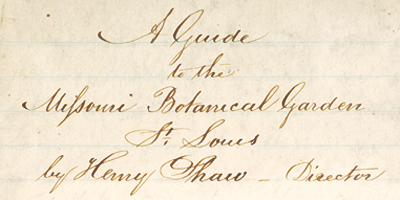 A Guide
to the
Missouri Botanical Garden
St. Louis
by Henry Shaw _ Director